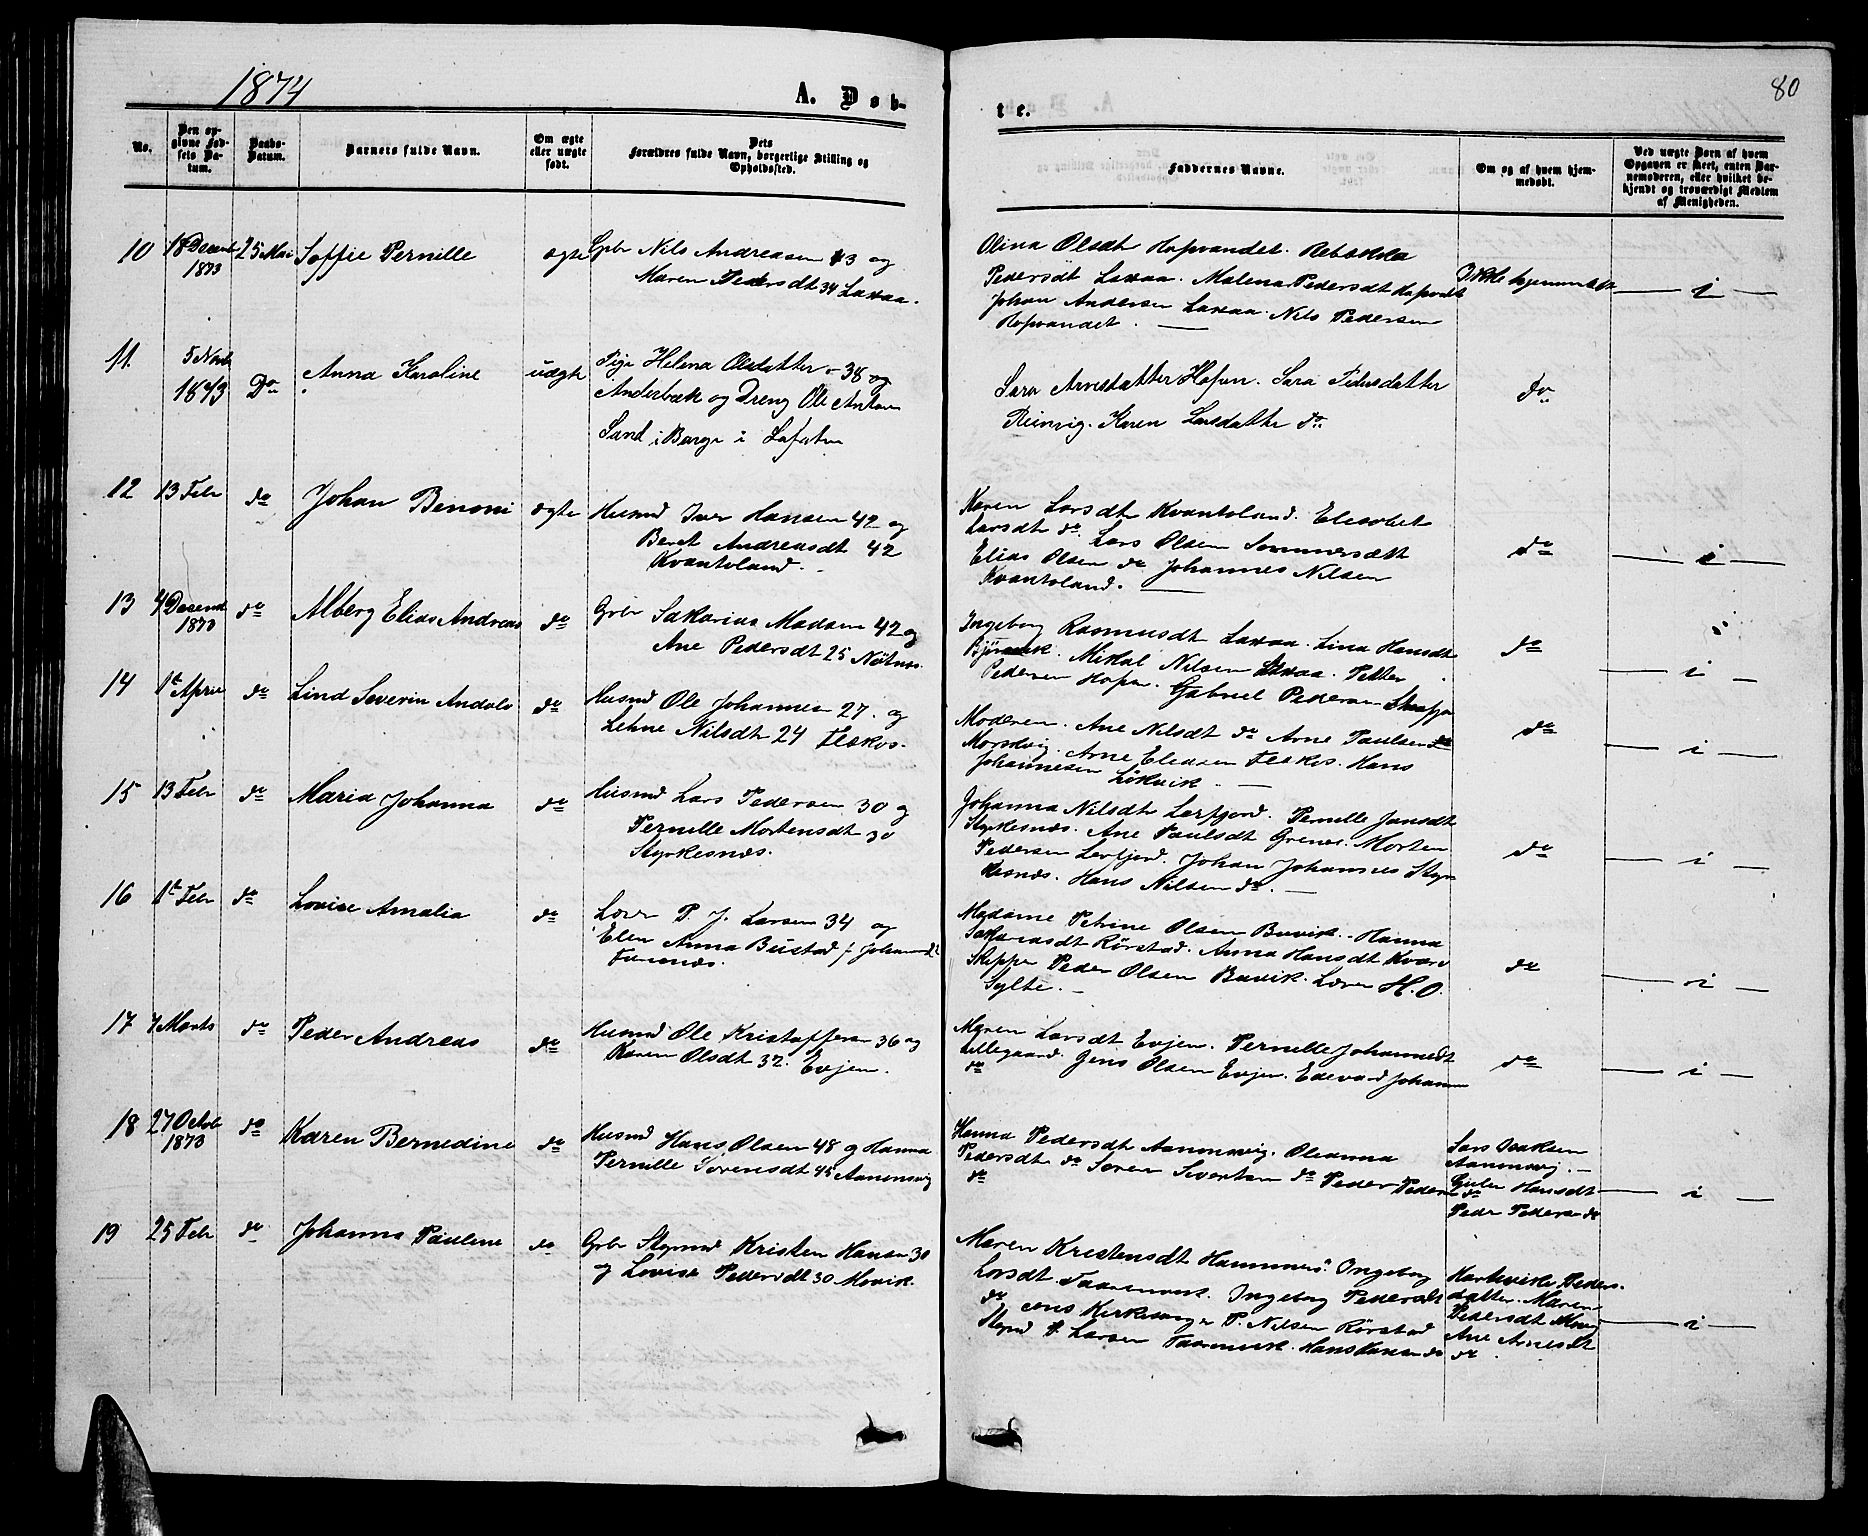 1874
A. Døb-
te.
80
No.
Den op-
givne Fød-
sels Da-
tum.
Daabs-
Datum.
Barnets fulde Navn.
Om ægte
eller uægte
født.
Dets
Forældres fulde Navn, borgerlige Stilling og
Opholdssted.
Faddernes Navne.
Om og af hvem hjem-
medøbt.
Ved uægte Børn af hvem
Opgaven er skeet, enten Bar-
nemoderen, eller hvilket be-
kjendt og troværdigt Medlem
af Menigheden.
10 18 Decemb 1873 25 Mai Soffie Pernille ægte
Gbr Nils Andreasen 43 og
Maren Pedersdt 34 Laxaa.
Olina Olsdt Hopvandet. Rebækka
Pedersdt Laxaa. Malena Pedersdt Hopvandt
Johan Andersen Laxaa. Nils Pedersen
Hopvandet.
Ikke hjemmedøbt
i
11. 5 Novb 1873 Do Anna Karoline uægte
Pige Helena Olsdatter 38 og
og Dreng Ole Anton
Sand i Borge i Lofoten
Sara Arnesdatter Hopen. Sara Pedersdatter
Reinvig. Karen Larsdatter do
do
12 13 Febr do Johan Benoni ægte
Husmd Iver Hansen 42 og
Beret Andreasdt 42
Kvantoland.
Karen Larsdt Kvantoland. Elesabet
Larsdt do Lars Olsen Sommersætt
Elias Olsen do Johannes Nilsen
Kvantoland.
do
i
13 4 Desemb 1873 do Alberg Elias Andreas do
Grbr Sakarias Madsen 42 og
Ane Pedersdt 25 Nøtnes.
Ingeborg Rasmusdt Laxaa. Lina Hansdt
Mikal Nilsen Laxaa. Petter
Pedersen Hopen. Gabriel Pedersen
do
i
14 1te April do Lind Severin Andols do
Husmd Ole Johannesen 27. og
Lehne Nilsdt 24 Flekos.
Moderen. Ane Nilsdt do Arne Paulsen do
Morsvig. Arne Eliasen Flekos. Hans
Johannesen Løkvik.
do
i
15 13 Febr do Maria Johanna do
Husmd Lars Pedersen 30 og
Pernille Mortensdt 30
Styrkesnæs.
Johanna Nilsdt Lerfjord. Pernille Jansdt
Styrkesnæs. Ane Paulsdt Grenes. Morten
Pedersen Lerfjord. Johan Johannes Styr
kesnæs. Hans Nilsen do.
do
i
16 1te Febr do Lovise Amalia do
Lærer P. J. Larsen 34 og
Elen Anna Bustad f. Johannesdt
Madame Petrine Olsen Buvik. Hanna
Sakariasdt Rørstad. Anna Hansdt Kvarv
Skipper Peder Olsen Buvik. Lærer H. O.
Sylte.
do
i
17 7 Marts do Peder Andreas do
Husmd Ole Kristoffersen 36 og
Karen Olsdt 32. Evjen.
Maren Larsdt Evjen. Pernille Johannesdt
Lillegaard. Jens Olsen Evjen. Edevard Johannesen
do
do
i
18 27 Octob 1873 do Karen Bernedine do
Husmd Hans Olsen 48 og Hanna
Pernille Sørensdt 45 Aanonsvig
Hanna Pedersdt Aanonsvig. Oleanna
Pedersdt do Søren Sivertsen do Peder Pedersen
do
Lars Isaksen
Aanonsvig.
Hansdt
do
Peder Pedersen do
i
19 25 Febr do Johanna Pauline do
Gbr Styrmd Kristen Hansen 30
og Lovise Pedersdt 30 Movik.
Maren Kristensdt Hammnes. Ingeborg
Larsdt Taarnvik. Ingeborg Pedersdt
do Kirkesanger P. Nilsen Rørstad
Larsen Taarnvik. Hans Larsen do
Hartvikke Peders-
datter. Maren
Pedersdt Movig
Ane Arnesdt
do
i